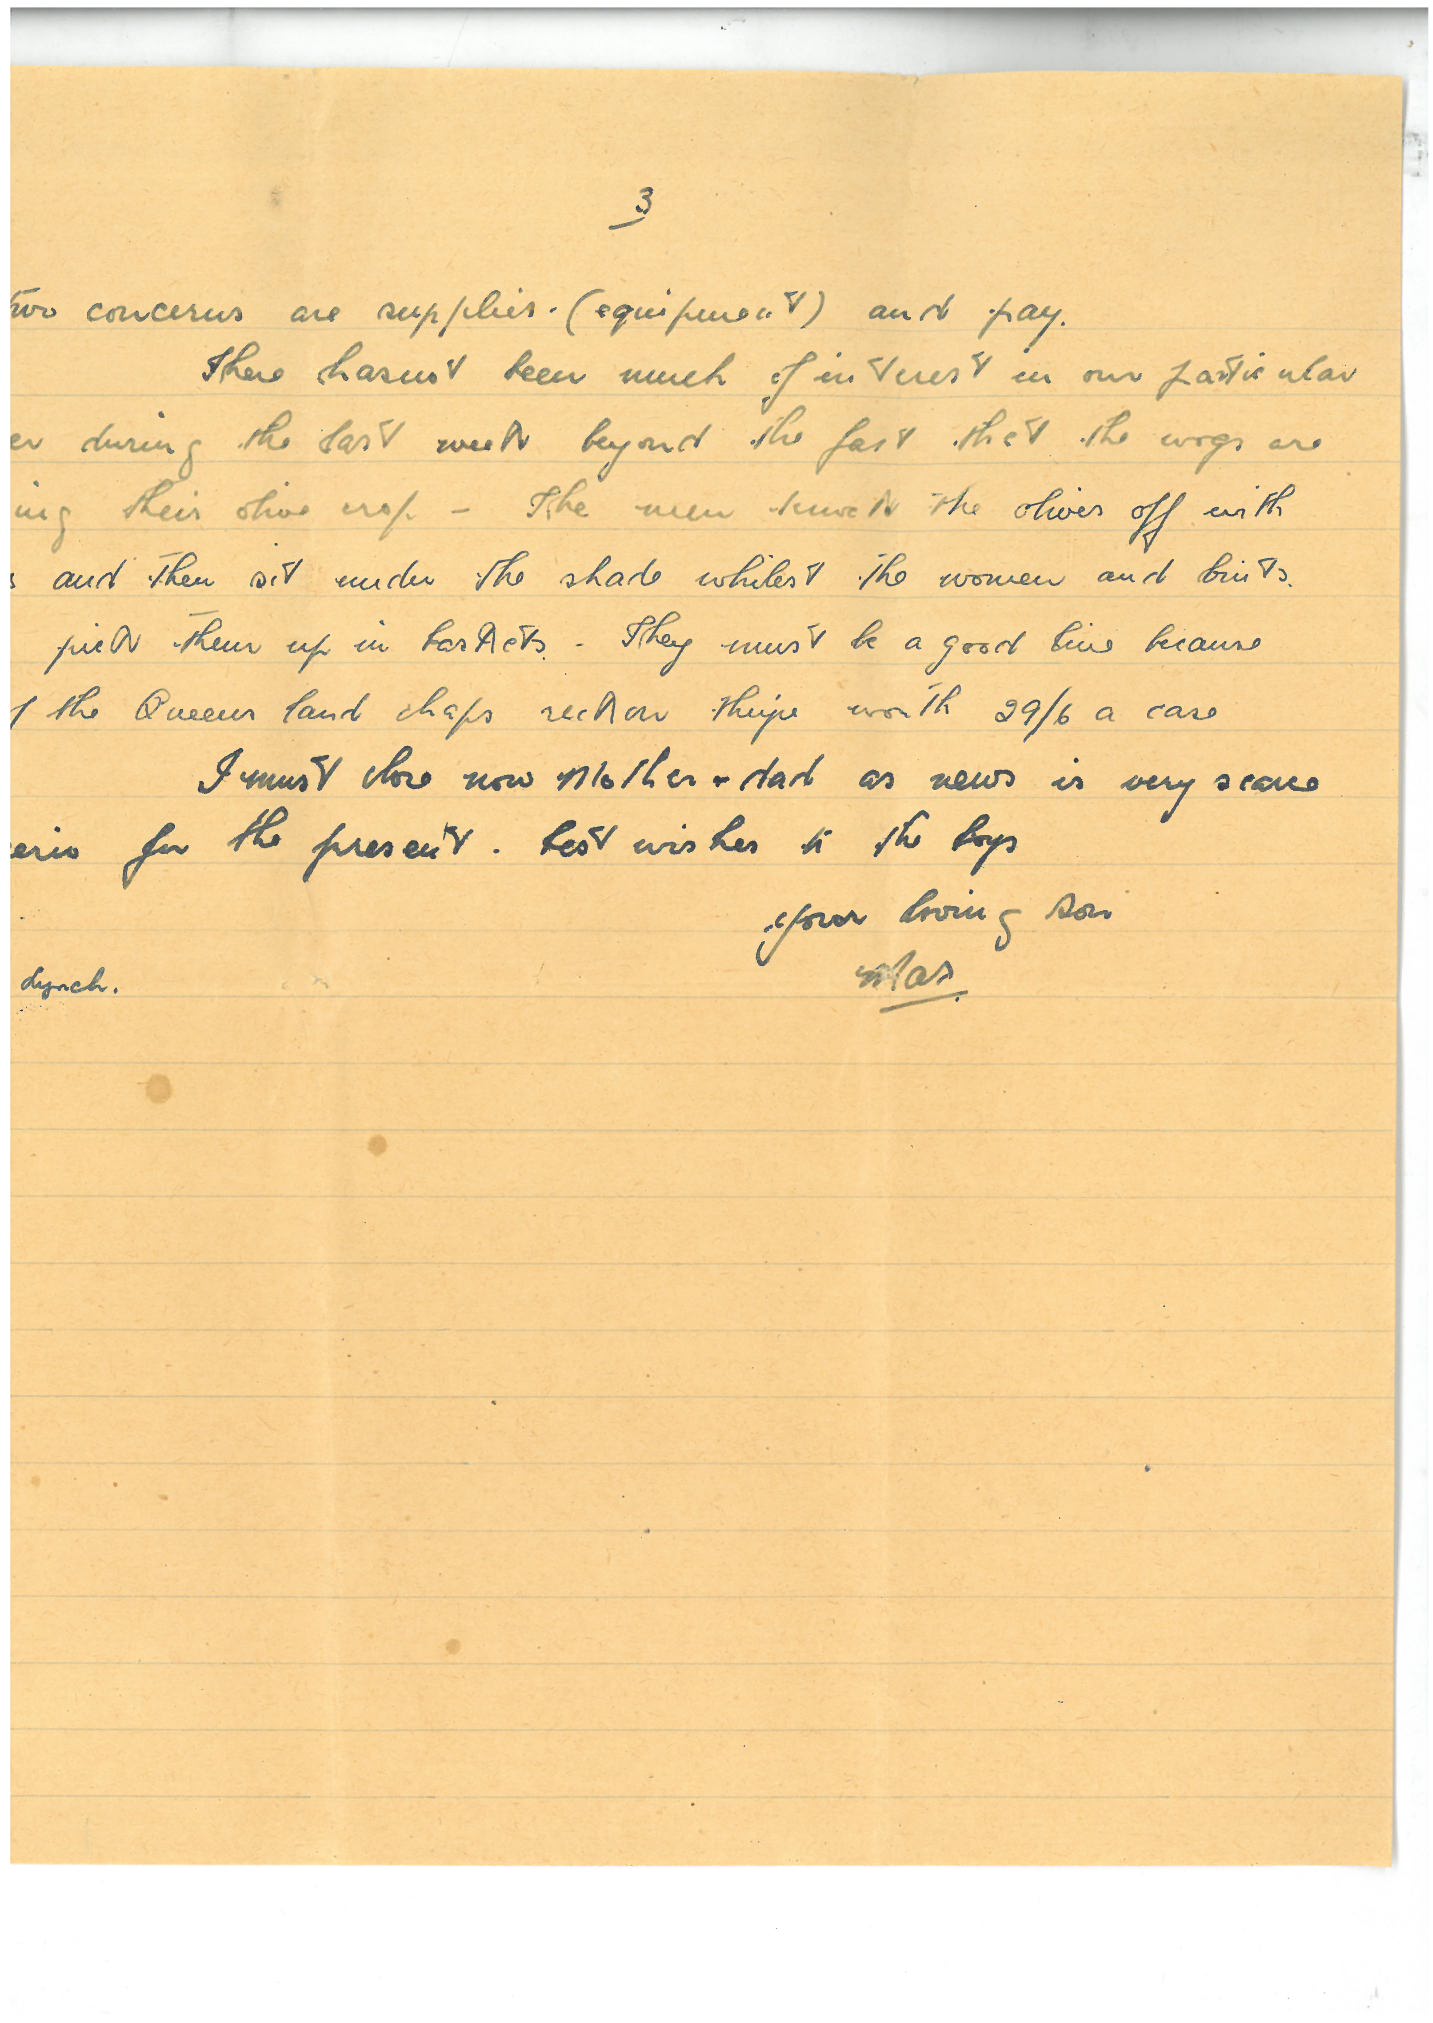 3
two concerns are supplies. (equipment) and pay.
There hasnt been much of interest in our particular
er during the last week beyond the fact that the wogs are
ing their olive crop - The men knock the olives off with
s and then sit under the shade whilest the women and bints.
pick them up in baskets. - They must be a good line because
the Queensland chaps reckon theyre worth 29/6 a case
I must close now Mother & dad as news is very scarce
erio for the present. Best wishes to the boys
your loving son
Lynch.